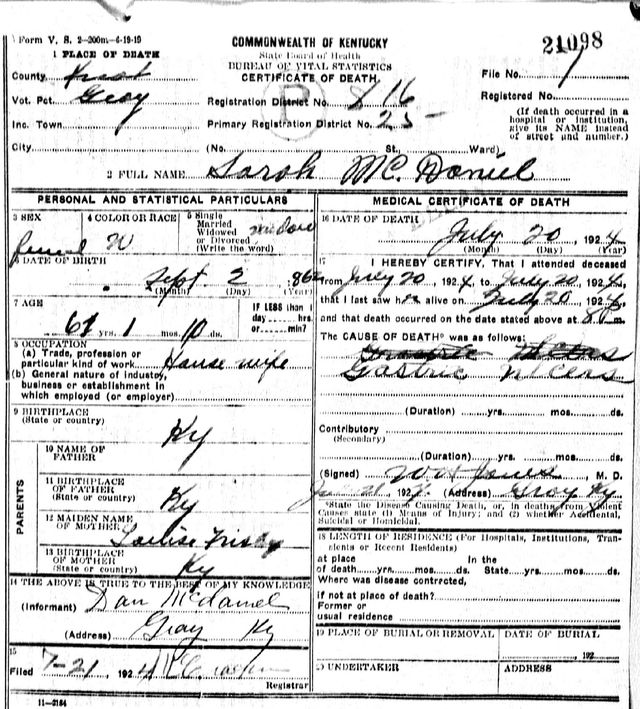 Form V. S. 2-200m-4-19-19
COMMONWEALTH OF KENTUCKY
State Board of Health
BUREAU OF VITAL STATISTICS
CERTIFICATE OF DEATH
21098
1 PLACE OF DEATH
County Knox
Vot. Pct. Gray
Inc. Town
City
Registration District No. 816
Primary Registration District No. 25
(No. St., Ward)
File No.
Registered No.
(If death occurred in a
hospital or institution,
give its NAME instead
of street and number.)
2 FULL NAME Sarah McDaniel
PERSONAL AND STATISTICAL PARTICULARS
3 SEX
4 COLOR OR RACE
W
5 Single
Married
Widowed
or Divorced
(Write the word)
widow
6 DATE OF BIRTH
Sept. 2
(Month) (Day) (Year)
7 AGE
yrs. 1 mos. 10 ds.
IF LESS than 1
day hrs.
or min?
8 OCCUPATION
(a) Trade, profession or
particular kind of work House wife
(b) General nature of industry,
business or establishment in
which employed (or employer)
9 BIRTHPLACE
(State or country)
Ky
PARENTS
10 NAME OF
FATHER
11 BIRTHPLACE
OF FATHER
(State or country)
Ky
12 MAIDEN NAME
OF MOTHER
13 BIRTHPLACE
OF MOTHER
(State or country)
Ky
14 THE ABOVE IS TRUE TO THE BEST OF MY KNOWLEDGE
(Informant) Dan McDaniel
(Address) Gray Ky
15
Filed 7-21, 1924
Registrar
11-2184
MEDICAL CERTIFICATE OF DEATH
16 DATE OF DEATH
July 20, 1924
(Month) (Day) (Year)
17
I HEREBY CERTIFY, That I attended deceased
from July 20, 1924, to July 20, 1924,
that I last saw her alive on July 20, 1924,
and that death occurred on the date stated above at 8 m.
The CAUSE OF DEATH* was as follows:
Gastric Ulcers
(Duration) yrs. mos. ds.
Contributory
(Secondary)
(Duration) yrs. mos. ds.
(Signed) Jones, M. D.
192 (Address) Gray Ky
*State the Disease Causing Death, or, in deaths from Violent
Causes state (1) Means of Injury; and (2) whether Accidental,
Suicidal or Homicidal.
18 LENGTH OF RESIDENCE (For Hospitals, Institutions, Transients
or Recent Residents)
at place In the
of death yrs. mos. ds. State yrs. mos. ds.
Where was disease contracted,
if not at place of death?
Former or
usual residence
19 PLACE OF BURIAL OR REMOVAL
DATE OF BURIAL
, 192
20 UNDERTAKER
ADDRESS